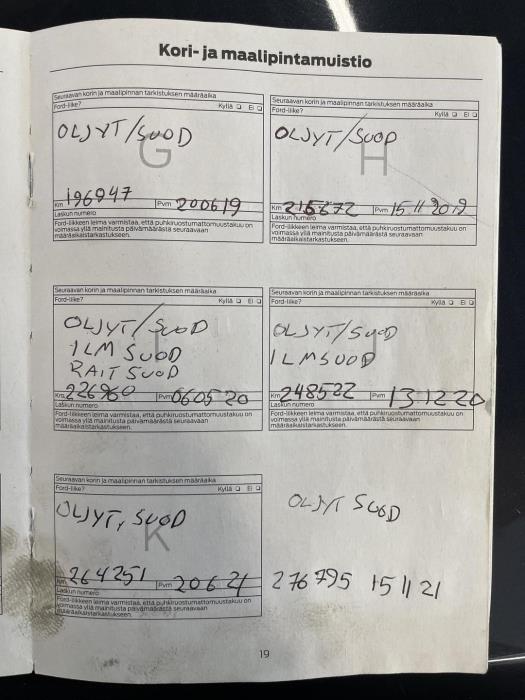 Kori- ja maalipintamuistio
Seuraavan korin ja maalipinnan tarkistuksen määräaika
Ford-liike? Kyllä ❏ Ei ❏
G
OLJYT/SUOD
Km 196947 Pvm 200619
Laskun numero
Ford-liikkeen leima varmistaa, että puhkiruostumattomuustakuu on
voimassa yllä mainitusta päivämäärästä seuraavaan
määräaikaistarkastukseen.
Seuraavan korin ja maalipinnan tarkistuksen määräaika
Ford-liike? Kyllä ❏ Ei ❏
H
OLJYT/SUOD
Km Pvm 15 11 2019
Laskun numero
Ford-liikkeen leima varmistaa, että puhkiruostumattomuustakuu on
voimassa yllä mainitusta päivämäärästä seuraavaan
määräaikaistarkastukseen.
Seuraavan korin ja maalipinnan tarkistuksen määräaika
Ford-liike? Kyllä ❏ Ei ❏
I
OLJYT/SUOD
ILM SUOD
RAIT SUOD
Km 226960 Pvm 060520
Laskun numero
Ford-liikkeen leima varmistaa, että puhkiruostumattomuustakuu on
voimassa yllä mainitusta päivämäärästä seuraavaan
määräaikaistarkastukseen.
Seuraavan korin ja maalipinnan tarkistuksen määräaika
Ford-liike? Kyllä ❏ Ei ❏
J
OLJYT/SUOD
ILMSUOD
Km 248522 Pvm 13 12 20
Laskun numero
Ford-liikkeen leima varmistaa, että puhkiruostumattomuustakuu on
voimassa yllä mainitusta päivämäärästä seuraavaan
määräaikaistarkastukseen.
Seuraavan korin ja maalipinnan tarkistuksen määräaika
Ford-liike? Kyllä ❏ Ei ❏
K
OLJYT, SUOD
Km 264251 Pvm 20621
Laskun numero
Ford-liikkeen leima varmistaa, että puhkiruostumattomuustakuu on
voimassa yllä mainitusta päivämäärästä seuraavaan
määräaikaistarkastukseen.
OLJYT SUOD
276795 15 11 21
19